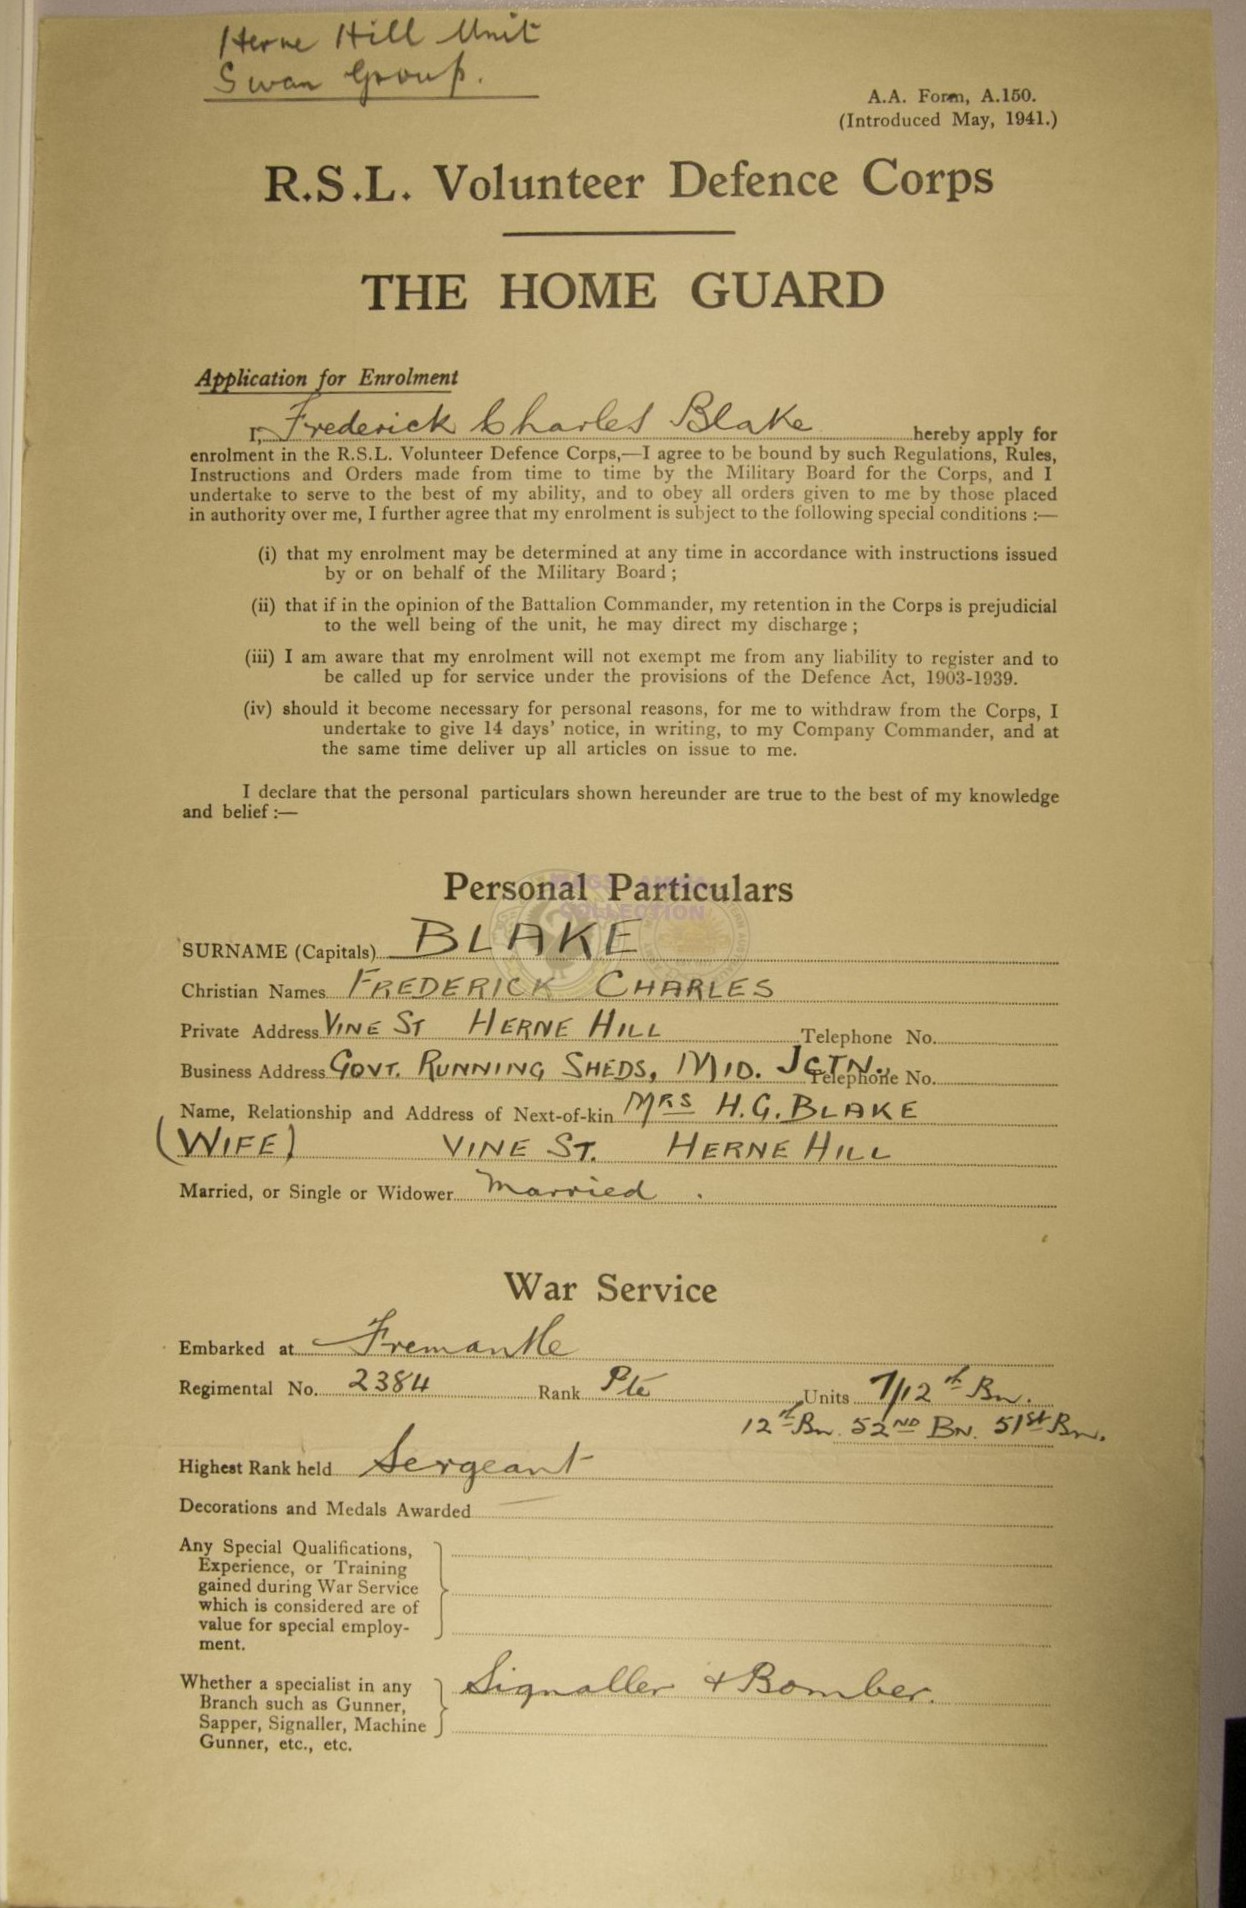 Herne Hill Unit
Swan Group.
A.A. Form, A.150.
(Introduced May, 1941.)
R.S.L. Volunteer Defence Corps
THE HOME GUARD
Application for Enrolment
I, Frederick Charles Blake hereby apply for
enrolment in the R.S.L. Volunteer Defence Corps,—I agree to be bound by such Regulations, Rules,
Instructions and Orders made from time to time by the Military Board for the Corps, and I
undertake to serve to the best of my ability, and to obey all orders given to me by those placed
in authority over me, I further agree that my enrolment is subject to the following special conditions :—
(i) that my enrolment may be determined at any time in accordance with instructions issued
by or on behalf of the Military Board ;
(ii) that if in the opinion of the Battalion Commander, my retention in the Corps is prejudicial
to the well being of the unit, he may direct my discharge ;
(iii) I am aware that my enrolment will not exempt me from any liability to register and to
be called up for service under the provisions of the Defence Act, 1903-1939.
(iv) should it become necessary for personal reasons, for me to withdraw from the Corps, I
undertake to give 14 days' notice, in writing, to my Company Commander, and at
the same time deliver up all articles on issue to me.
I declare that the personal particulars shown hereunder are true to the best of my knowledge
and belief :—
Personal Particulars
COLLECTION
SURNAME (Capitals) BLAKE
Christian Names FREDERICK CHARLES
Private Address VINE ST HERNE HILL Telephone No.
Business Address GOVT. RUNNING SHEDS, MID. JCTN. Telephone No.
Name, Relationship and Address of Next-of-kin MRS H.G. BLAKE
(WIFE) VINE ST. HERNE HILL
Married, or Single or Widower Married .
War Service
Embarked at Fremantle
Regimental No. 2384 Rank Pte Units 7/12th Bn.
12th Bn. 52ND BN. 51st Bn.
Highest Rank held Sergeant
Decorations and Medals Awarded —
Any Special Qualifications,
Experience, or Training
gained during War Service
which is considered are of
value for special employ-
ment.
Whether a specialist in any Signaller + Bomber.
Branch such as Gunner,
Sapper, Signaller, Machine
Gunner, etc., etc.